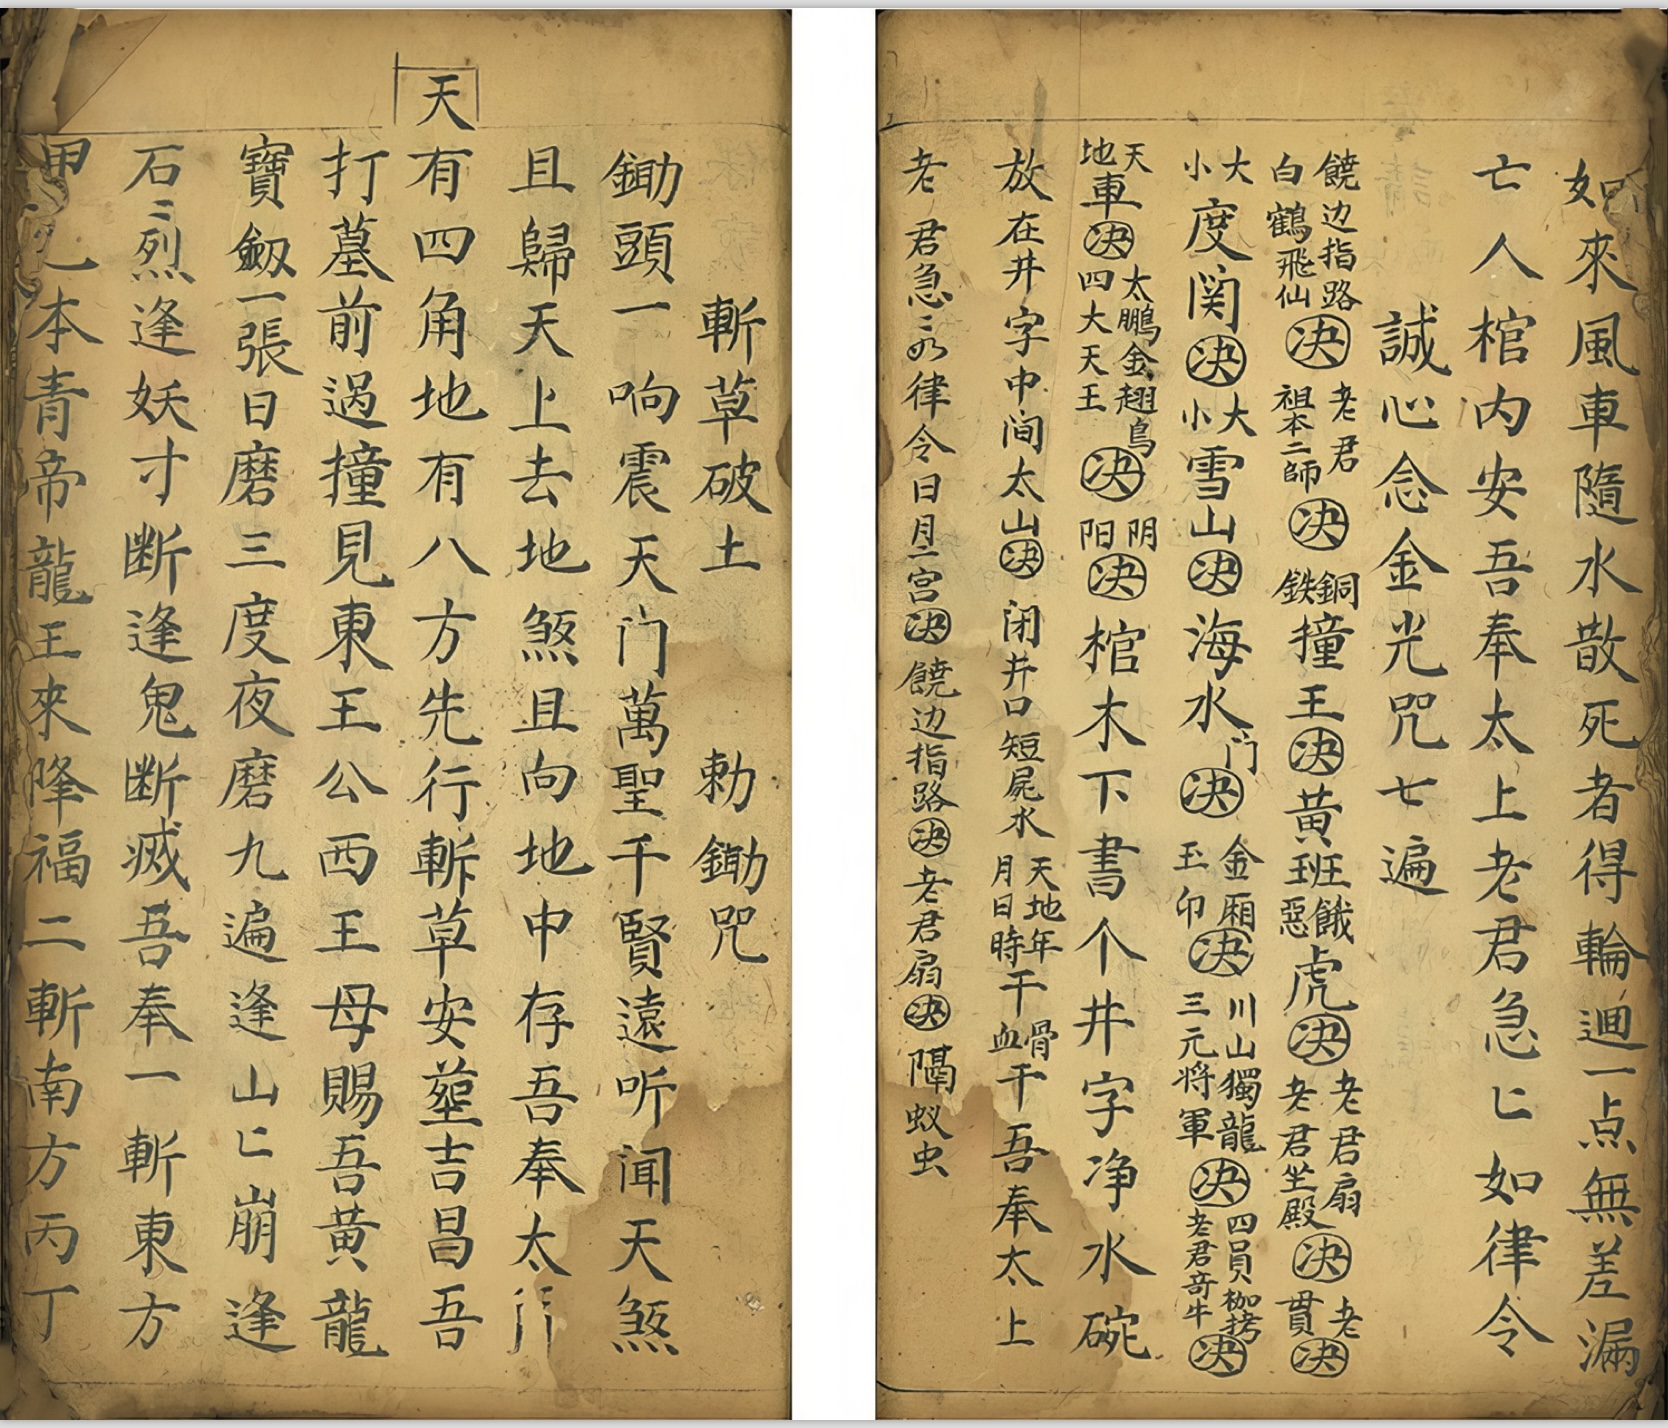 如來風車隨水散死者得輪迴一点無差漏
亡人棺内安吾奉太上老君急〻如律令
誠心念金光咒七遍
饒边指路
白鶴飛仙
决
老君
祖本二師
决
銅
鉄
撞王决黃
班餓
惡
虎决
老君扇
老君坐殿
决
老
貫
决
大
小
度関决
大
小
雪山决海水门决
金厢
玉印
决
川山獨龍
三元将軍
决
四員枷拷
老君奇牛
决
天
地
車决
太鵬金翅鳥
四大天王
决
阴
阳
决棺木下書个井字净水碗
放在井字中间太山决闭井口短屍水
天地年
月日時
干
骨
血
干吾奉太上
老君急〻如律令日月二宫决饒边指路决老君扇决隔蚁虫
斬草破土 勅鋤咒
鋤頭一响震天门萬聖千賢遠听闻天煞
且歸天上去地煞且向地中存吾奉太行
天有四角地有八方先行斬草安葬吉昌吾
打墓前過撞見東王公西王母賜吾黃龍
寶劔一張日磨三度夜磨九遍逢山〻崩逢
石〻烈逢妖寸断逢鬼断滅吾奉一斬東方
甲乙本青帝龍王來降福二斬南方丙丁